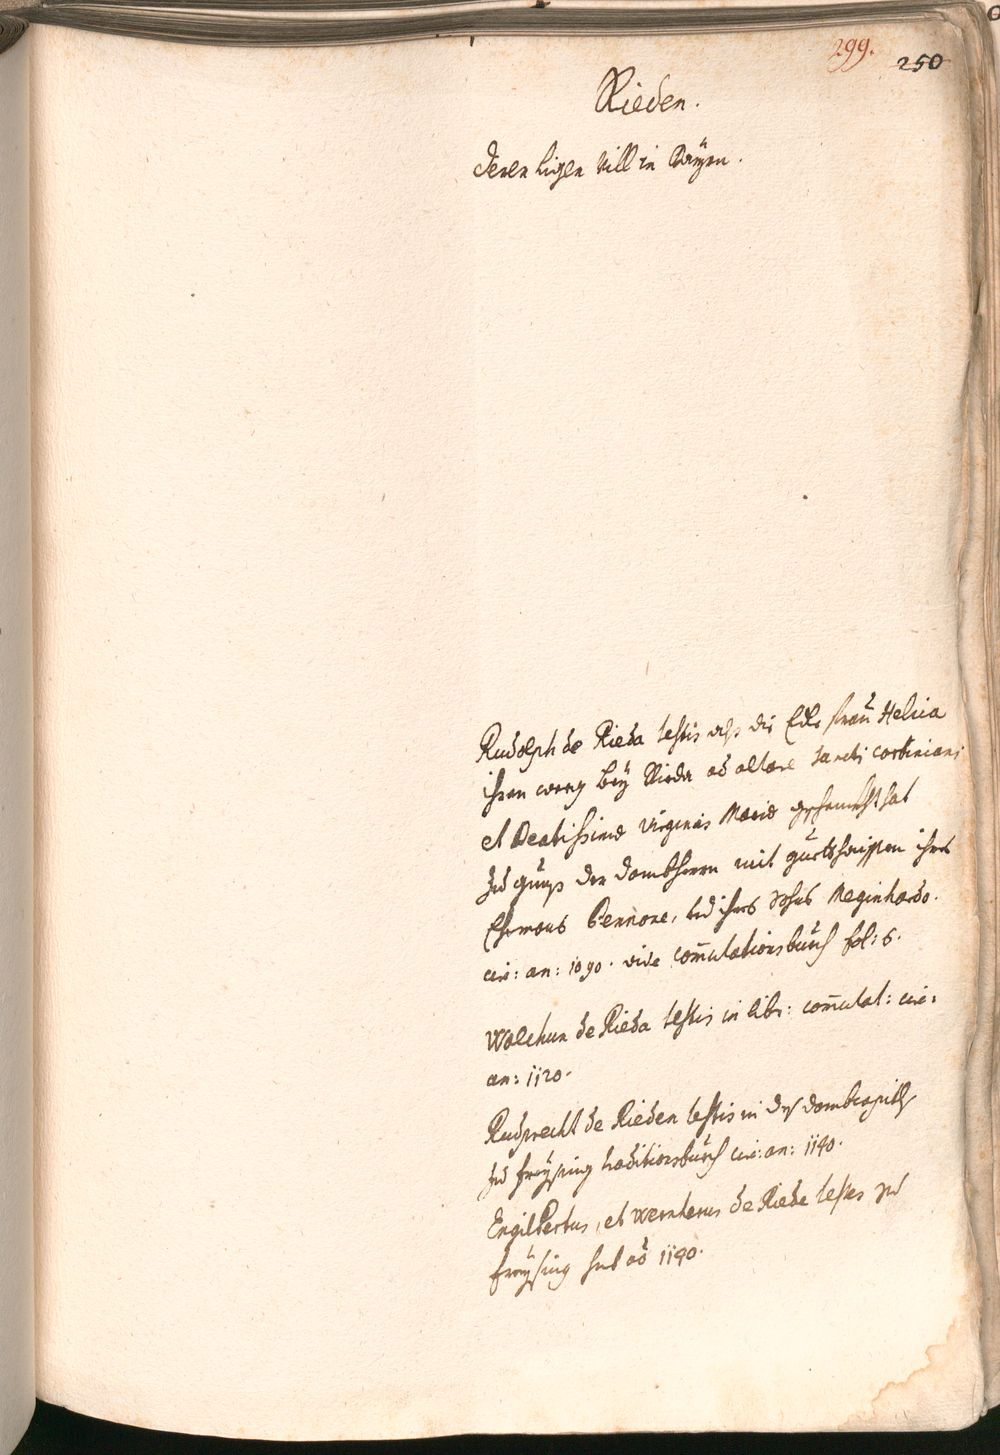 299.
250
Rieden.
Deren ligen vill in Bayrn.
Rudolph de Rieda testis als die Edle frau Helica
ihren bey Rieden ad altare sancti corbiniani
et Beatissimæ Virginis Mariæ geschenckht hat
zu der dombherrn mit guethaissen ihres
Ehemans Bennone, vnd ihres Meginhardo.
cir: an: 1090. vide com̄utationsbuech fol: 6.
Walchun de Rieda testis in libr: com̄utat: cir:
an: 1120.
Rudprecht de Rieden testis in des dombcapitls
zu freysing traditionsbuech cir: an: 1140.
Engilbertus, et Wernherus de Riede testes zu
freysing sub aō 1190.